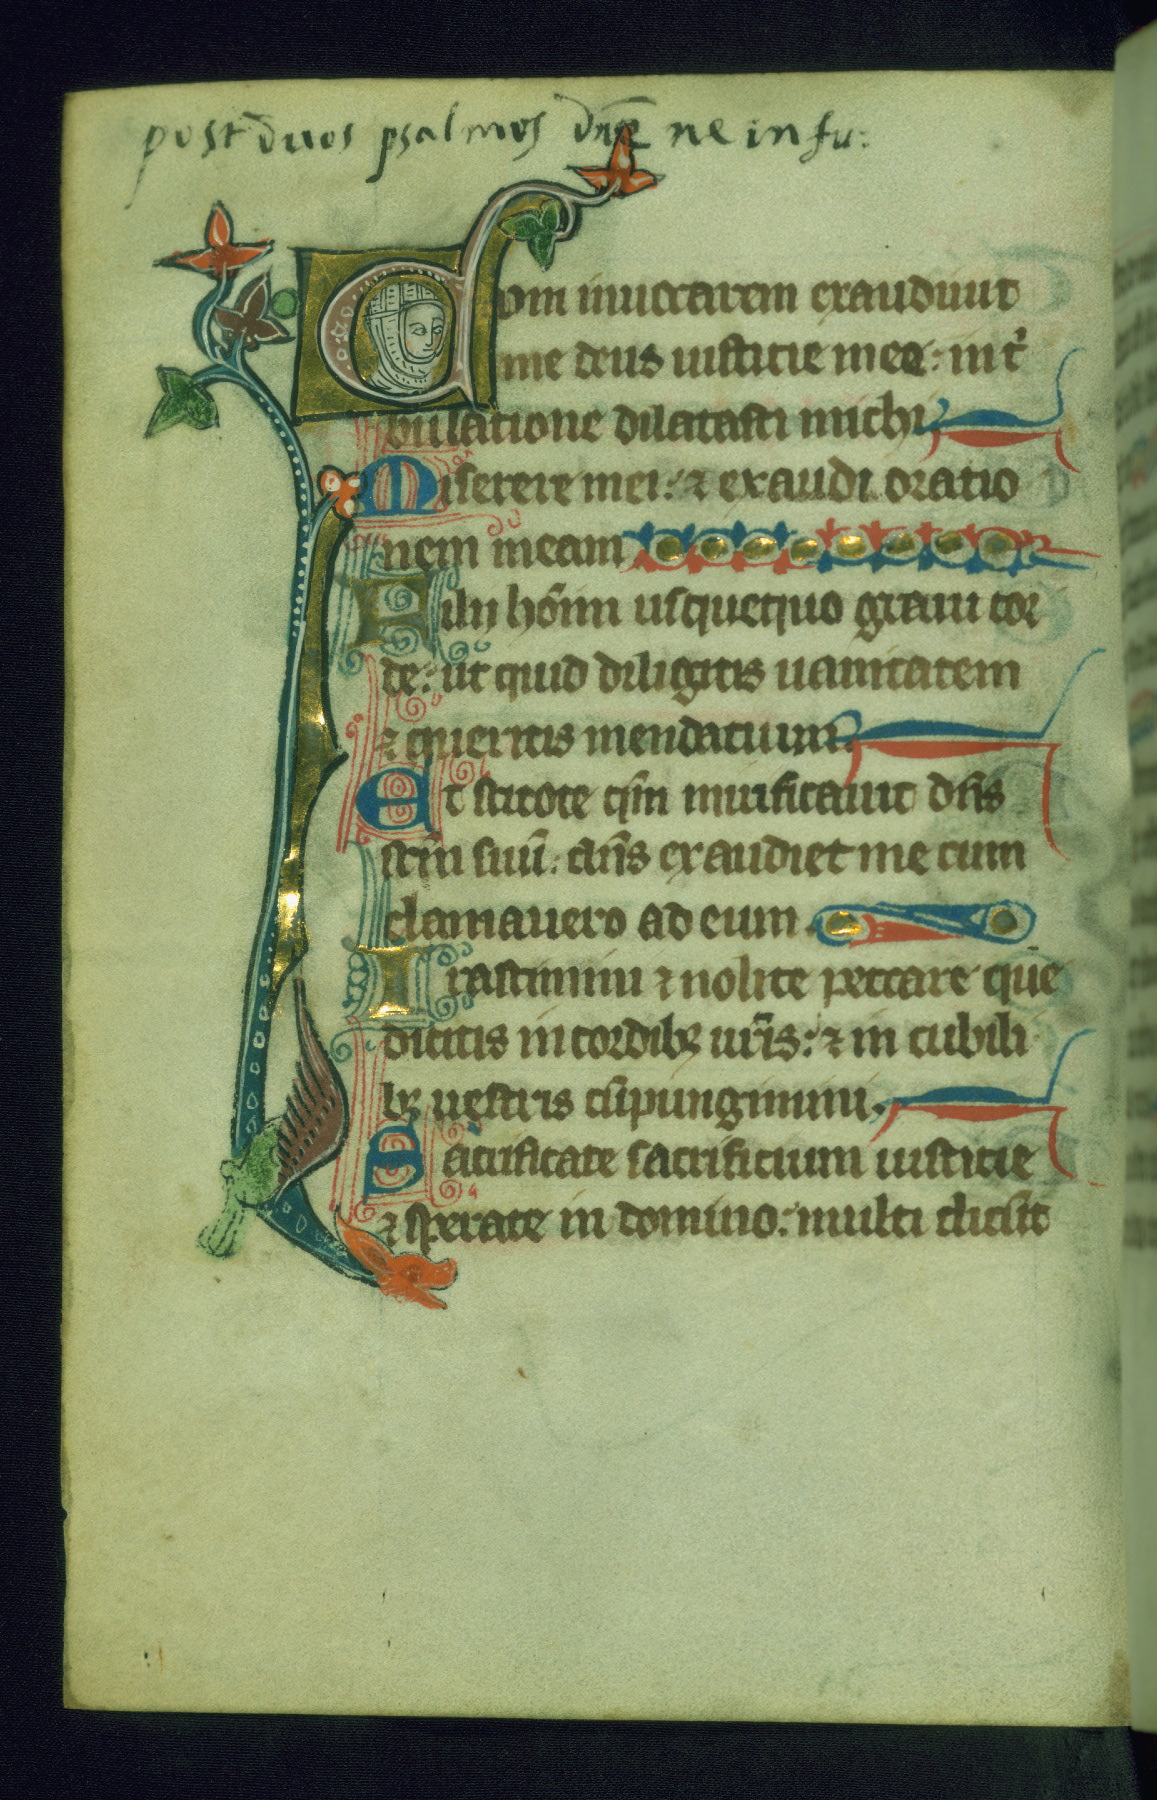 post duos psalmos dn̄e ne in fu:
Cvm inuocarem exaudiuit
me deus iusticie mee: in t̾
bulatione dilatasti michi
Miserere mei: ⁊ exaudi oratio
nem meam
Filij hōim usquequo graui cor
de: ut quid diligitis uanitatem
⁊ queritis mendacium.
Et scitote qm̄ mirificauit dn̄s
scm̄ suū: dn̄s exaudiet me cum
clamauero ad eum
Irascimini ⁊ nolite peccare que
dicitis in cordibꝫ ur̄is: ⁊ in cubili
bꝫ uestris cōpungimini.
Sacrificate sacrificium iusticie
⁊ sperate in domino: multi dicūt